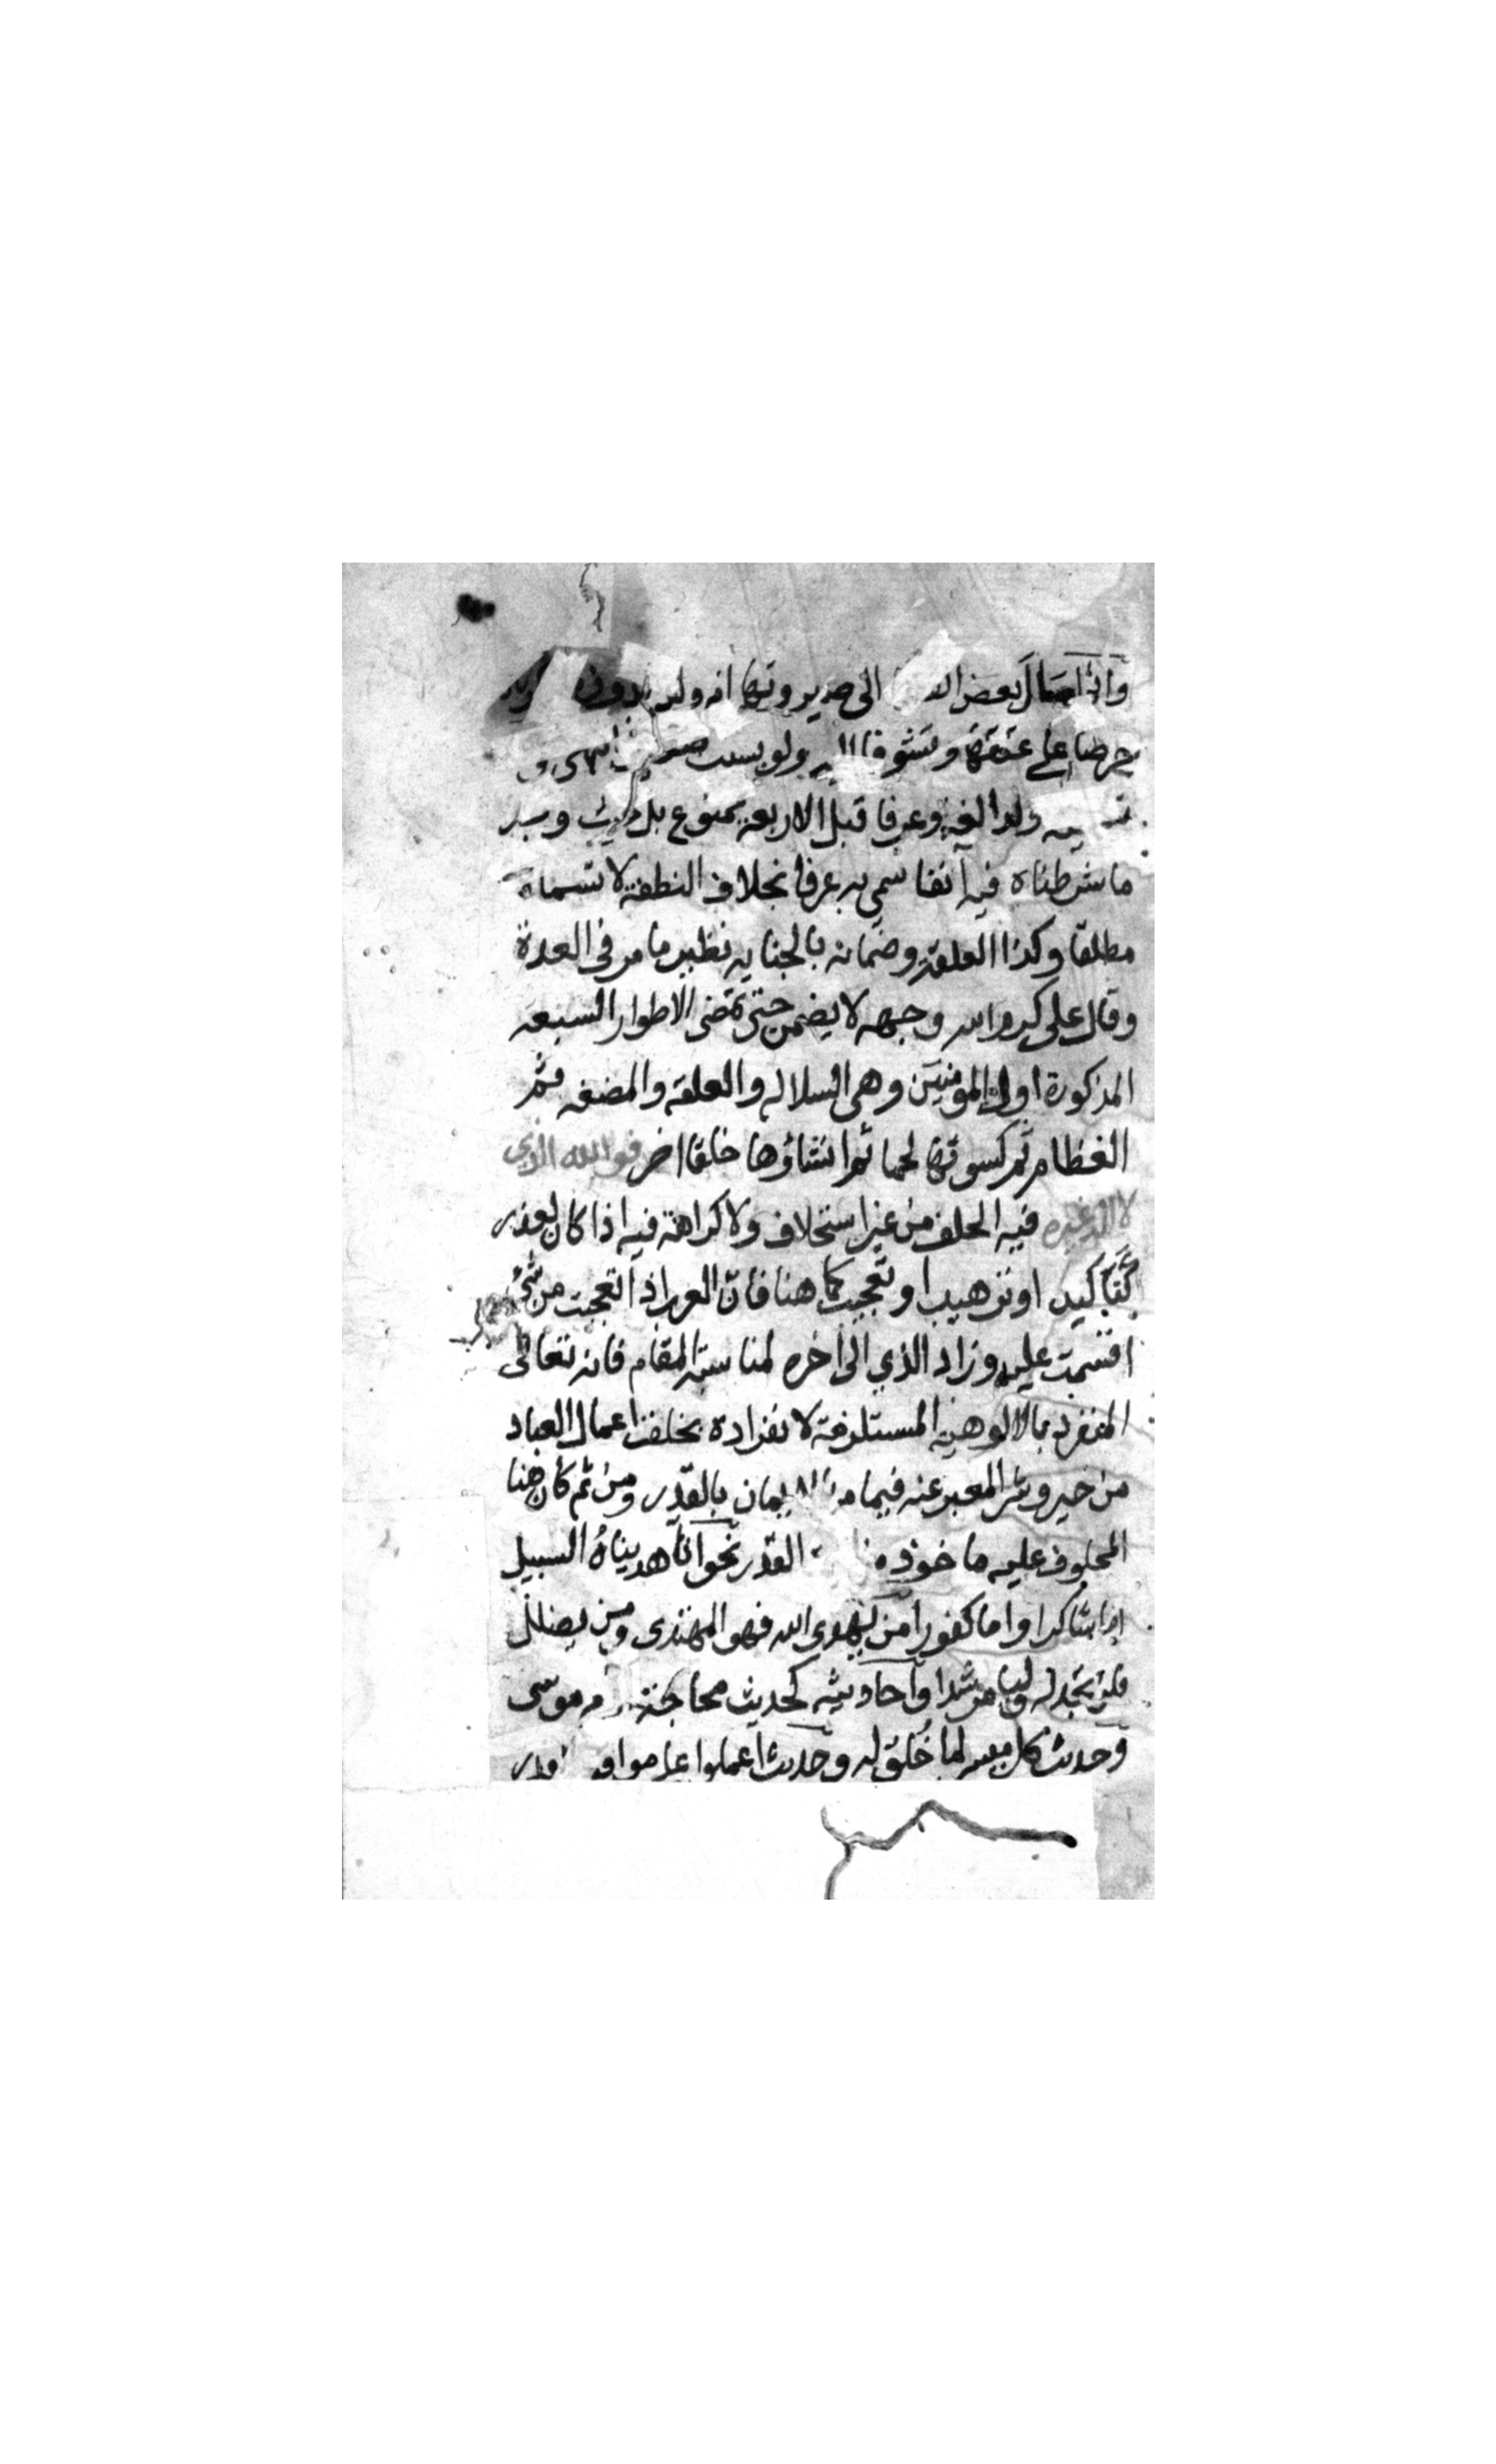 وانما مال بعض الى صيرورتها ام ولد بدون
حرصا على عتقها وتشوفا اليه ولو بسبب
ولدا لغة وعرفا قبل الاربعة ممنوع بل حيث وجد
ما شرطناه فيه آنفا سمي به عرفا بخلاف النطفة لا تسماه
مطلقا وكذا العلقة وضمانه بالجناية نظير ما مر في العدة
وقال علي كرم الله وجهه لا يضمن حتى تمضى الاطوار السبعه
المذكورة اول المومنين وهى السلاله والعلقه والمضغه ثم
العظام ثم كسوتها لحما ثم انشاؤها خلقا اخر فوالله الذي
لا اله غيره فيه الحلف من غير استحلاف ولا كراهة فيه اذا كان لعذر
كتاكيد او ترهيب او تعجيب كما هنا فان العرب اذا تعجبت من شئ
اقسمت عليه وزاد الذي الى اخره لمناسبة المقام فانه تعالى
المنفرد بالالوهية المستلزمة لانفراده بخلق اعمال العباد
من خير وشر المعبر عنه فيما مر بالايمان بالقدر ومن ثم كان هنا
المحلوف عليه ماخوذه القدر نحو انا هديناه السبيل
اما شاكرا واما كفورا من يهدى الله فهو المهتدى ومن يضلل
فلن تجد له وليا مرشدا واحاديثه كحديث محاجة ادم موسى
وحديث كل ميسر لما خلق له وحديث اعملوا على مواقع